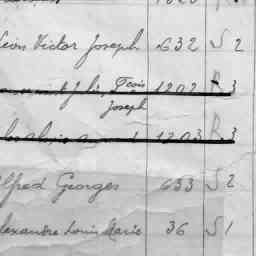 Léon Victor Joseph 632 S 2
Fcois 1202 R 3
Joseph
1203 R 3
Alfred Georges 633 S 2
Alexandre Louis Marie 36 S 1